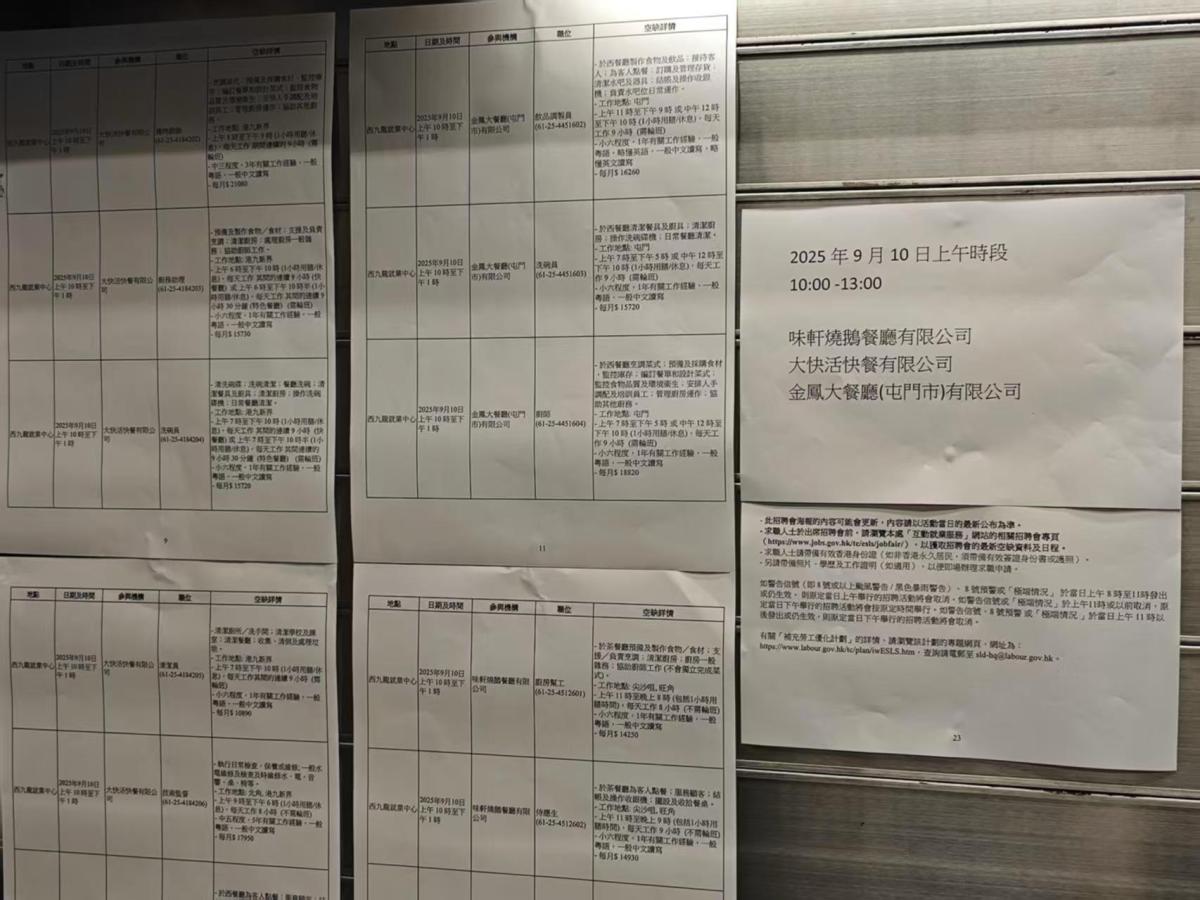 地點 日期及時間 參與機構 職位 空缺詳情
西九龍就業中心
2025年9月10日
上午10時至下
午1時
大快活快餐有限公
司
(61-25-4184202)
- 工作地點: 港九新界
- 上午8時至下午9時 (1小時用膳/休
息)，每天工作 其間連續的9小時 (需
輪班)
- 中三程度，3年有關工作經驗，一般
粵語，一般中文讀寫
- 每月$ 21080
西九龍就業中心
2025年9月10日
上午10時至下
午1時
大快活快餐有限公
司
廚務助理
(61-25-4184203)
- 預備及製作食物／食材；支援及負責
烹調；清潔廚房；處理廚房一般雜
務；協助廚師工作。
- 工作地點: 港九新界
- 上午6時至下午10時 (1小時用膳/休
息)，每天工作 其間的連續9小時 (快
餐廳) 或 上午6時至下午10時半 (1小
時用膳/休息)，每天工作 其間的連續9
小時30分鐘 (特色餐廳) (需輪班)
- 小六程度，1年有關工作經驗，一般
粵語，一般中文讀寫
- 每月$ 15730
西九龍就業中心
2025年9月10日
上午10時至下
午1時
大快活快餐有限公
司
洗碗員
(61-25-4184204)
- 清洗碗碟；洗碗清潔；餐廳洗碗；清
潔餐具及廚具；清潔廚房；操作洗碗
碟機；日常餐廳清潔。
- 工作地點: 港九新界
- 上午7時至下午10時 (1小時用膳/休
息)，每天工作 其間的連續9小時 (快
餐廳) 或 上午7時至下午10時半 (1小
時用膳/休息)，每天工作 其間連續的
9小時30分鐘 (特色餐廳) (需輪班)
- 小六程度，1年有關工作經驗，一般
粵語，一般中文讀寫
- 每月$ 15720
9
地點 日期及時間 參與機構 職位 空缺詳情
西九龍就業中心
2025年9月10日
上午10時至下
午1時
大快活快餐有限公
司
清潔員
(61-25-4184205)
- 清潔廁所／洗手間；清潔學校及課
室；清潔餐廳；收集、清倒及處理垃
圾。
- 工作地點: 港九新界
- 上午7時至下午10時 (1小時用膳/休
息)，每天工作 其間的連續9小時 (需
輪班)
- 小六程度，1年有關工作經驗，一般
粵語，一般中文讀寫
- 每月$ 10890
西九龍就業中心
2025年9月10日
上午10時至下
午1時
大快活快餐有限公
司
技術監督
(61-25-4184206)
- 執行日常檢查，保養或維修;一般水
電維修及檢查及時維修水、電，音
響，桌，椅等。
- 工作地點: 北角, 港九新界
- 上午9時至下午6時 (1小時用膳/休
息)，每天工作8小時 (不需輪班)
- 中五程度，5年有關工作經驗，一般
粵語，一般中文讀寫
- 每月$ 17950
地點 日期及時間 參與機構 職位 空缺詳情
西九龍就業中心
2025年9月10日
上午10時至下
午1時
金鳳大餐廳(屯門
市)有限公司
飲品調製員
(61-25-4451602)
- 於西餐廳製作食物及飲品；接待客
人；為客人點餐；訂購及管理存貨；
清潔水吧及器具；結賬及操作收銀
機；負責水吧位日常運作。
- 工作地點: 屯門
- 上午11時至下午9時 或 中午12時
至下午10時 (1小時用膳/休息)，每天
工作9小時 (需輪班)
- 小六程度，1年有關工作經驗，一般
粵語，略懂英語，一般中文讀寫，略
懂英文讀寫
- 每月$ 16260
西九龍就業中心
2025年9月10日
上午10時至下
午1時
金鳳大餐廳(屯門
市)有限公司
洗碗員
(61-25-4451603)
- 於西餐廳清潔餐具及廚具；清潔廚
房；操作洗碗碟機；日常餐廳清潔。
- 工作地點: 屯門
- 上午7時至下午5時 或 中午12時至
下午10時 (1小時用膳/休息)，每天工
作9小時 (需輪班)
- 小六程度，1年有關工作經驗，一般
粵語，一般中文讀寫
- 每月$ 15720
西九龍就業中心
2025年9月10日
上午10時至下
午1時
金鳳大餐廳(屯門
市)有限公司
廚師
(61-25-4451604)
- 於西餐廳烹調菜式；預備及採購食材
，監控庫存；編訂餐單和設計菜式；
監控食物品質及環境衛生；安排人手
調配及培訓員工；管理廚房運作；協
助其他廚務。
- 工作地點: 屯門
- 上午7時至下午5時 或 中午12時至
下午10時 (1小時用膳/休息)，每天工
作9小時 (需輪班)
- 小六程度，1年有關工作經驗，一般
粵語，一般中文讀寫
- 每月$ 18820
11
地點 日期及時間 參與機構 職位 空缺詳情
西九龍就業中心
2025年9月10日
上午10時至下
午1時
味軒燒鵝餐廳有限
公司
廚房幫工
(61-25-4512601)
- 於茶餐廳預備及製作食物／食材；支
援／負責烹調；清潔廚房；廚房一般
雜務；協助廚師工作 (不會獨立完成菜
式)。
- 工作地點: 尖沙咀, 旺角
- 上午11時至晚上8時 (包括1小時用
膳時間)，每天工作8小時 (不需輪班)
- 小六程度，1年有關工作經驗，一般
粵語，一般中文讀寫
- 每月$ 14250
西九龍就業中心
2025年9月10日
上午10時至下
午1時
味軒燒鵝餐廳有限
公司
侍應生
(61-25-4512602)
- 於茶餐廳為客人點餐；服務顧客；結
賬及操作收銀機；擺設及收拾餐桌。
- 工作地點: 尖沙咀, 旺角
- 上午11時至晚上9時 (包括1小時用
膳時間)，每天工作9小時 (不需輪班)
- 小六程度，1年有關工作經驗，一般
粵語，一般中文讀寫
- 每月$ 14930
2025 年 9 月 10 日上午時段
10:00 -13:00
味軒燒鵝餐廳有限公司
大快活快餐有限公司
金鳳大餐廳(屯門市)有限公司
- 此招聘會海報的內容可能會更新，內容請以活動當日的最新公布為準。
- 求職人士於出席招聘會前，請瀏覽本處「互動就業服務」網站的相關招聘會專頁
（https://www.jobs.gov.hk/tc/esls/jobfair/），以獲取招聘會的最新空缺資料及日程。
- 求職人士請帶備有效香港身份證（如非香港永久居民，須帶備有效簽證身份書或護照）。
- 另請帶備照片、學歷及工作證明（如適用），以便即場辦理求職申請。
如警告信號（即 8 號或以上颱風警告／黑色暴雨警告）、8 號預警或「極端情況」於當日上午 8 時至11時發出
或仍生效，則原定當日上午舉行的招聘活動將會取消。如警告信號或「極端情況」於上午11時或以前取消，原
定當日下午舉行的招聘活動將會按原定時間舉行。如警告信號、8 號預警 或「極端情況」於當日上午 11 時以
後發出或仍生效，則原定當日下午舉行的招聘活動將會取消。
有關「補充勞工優化計劃」的詳情，請瀏覽該計劃的專題網頁，網址為：
https://www.labour.gov.hk/tc/plan/iwESLS.htm，查詢請電郵至 sld-hq@labour.gov.hk。
23